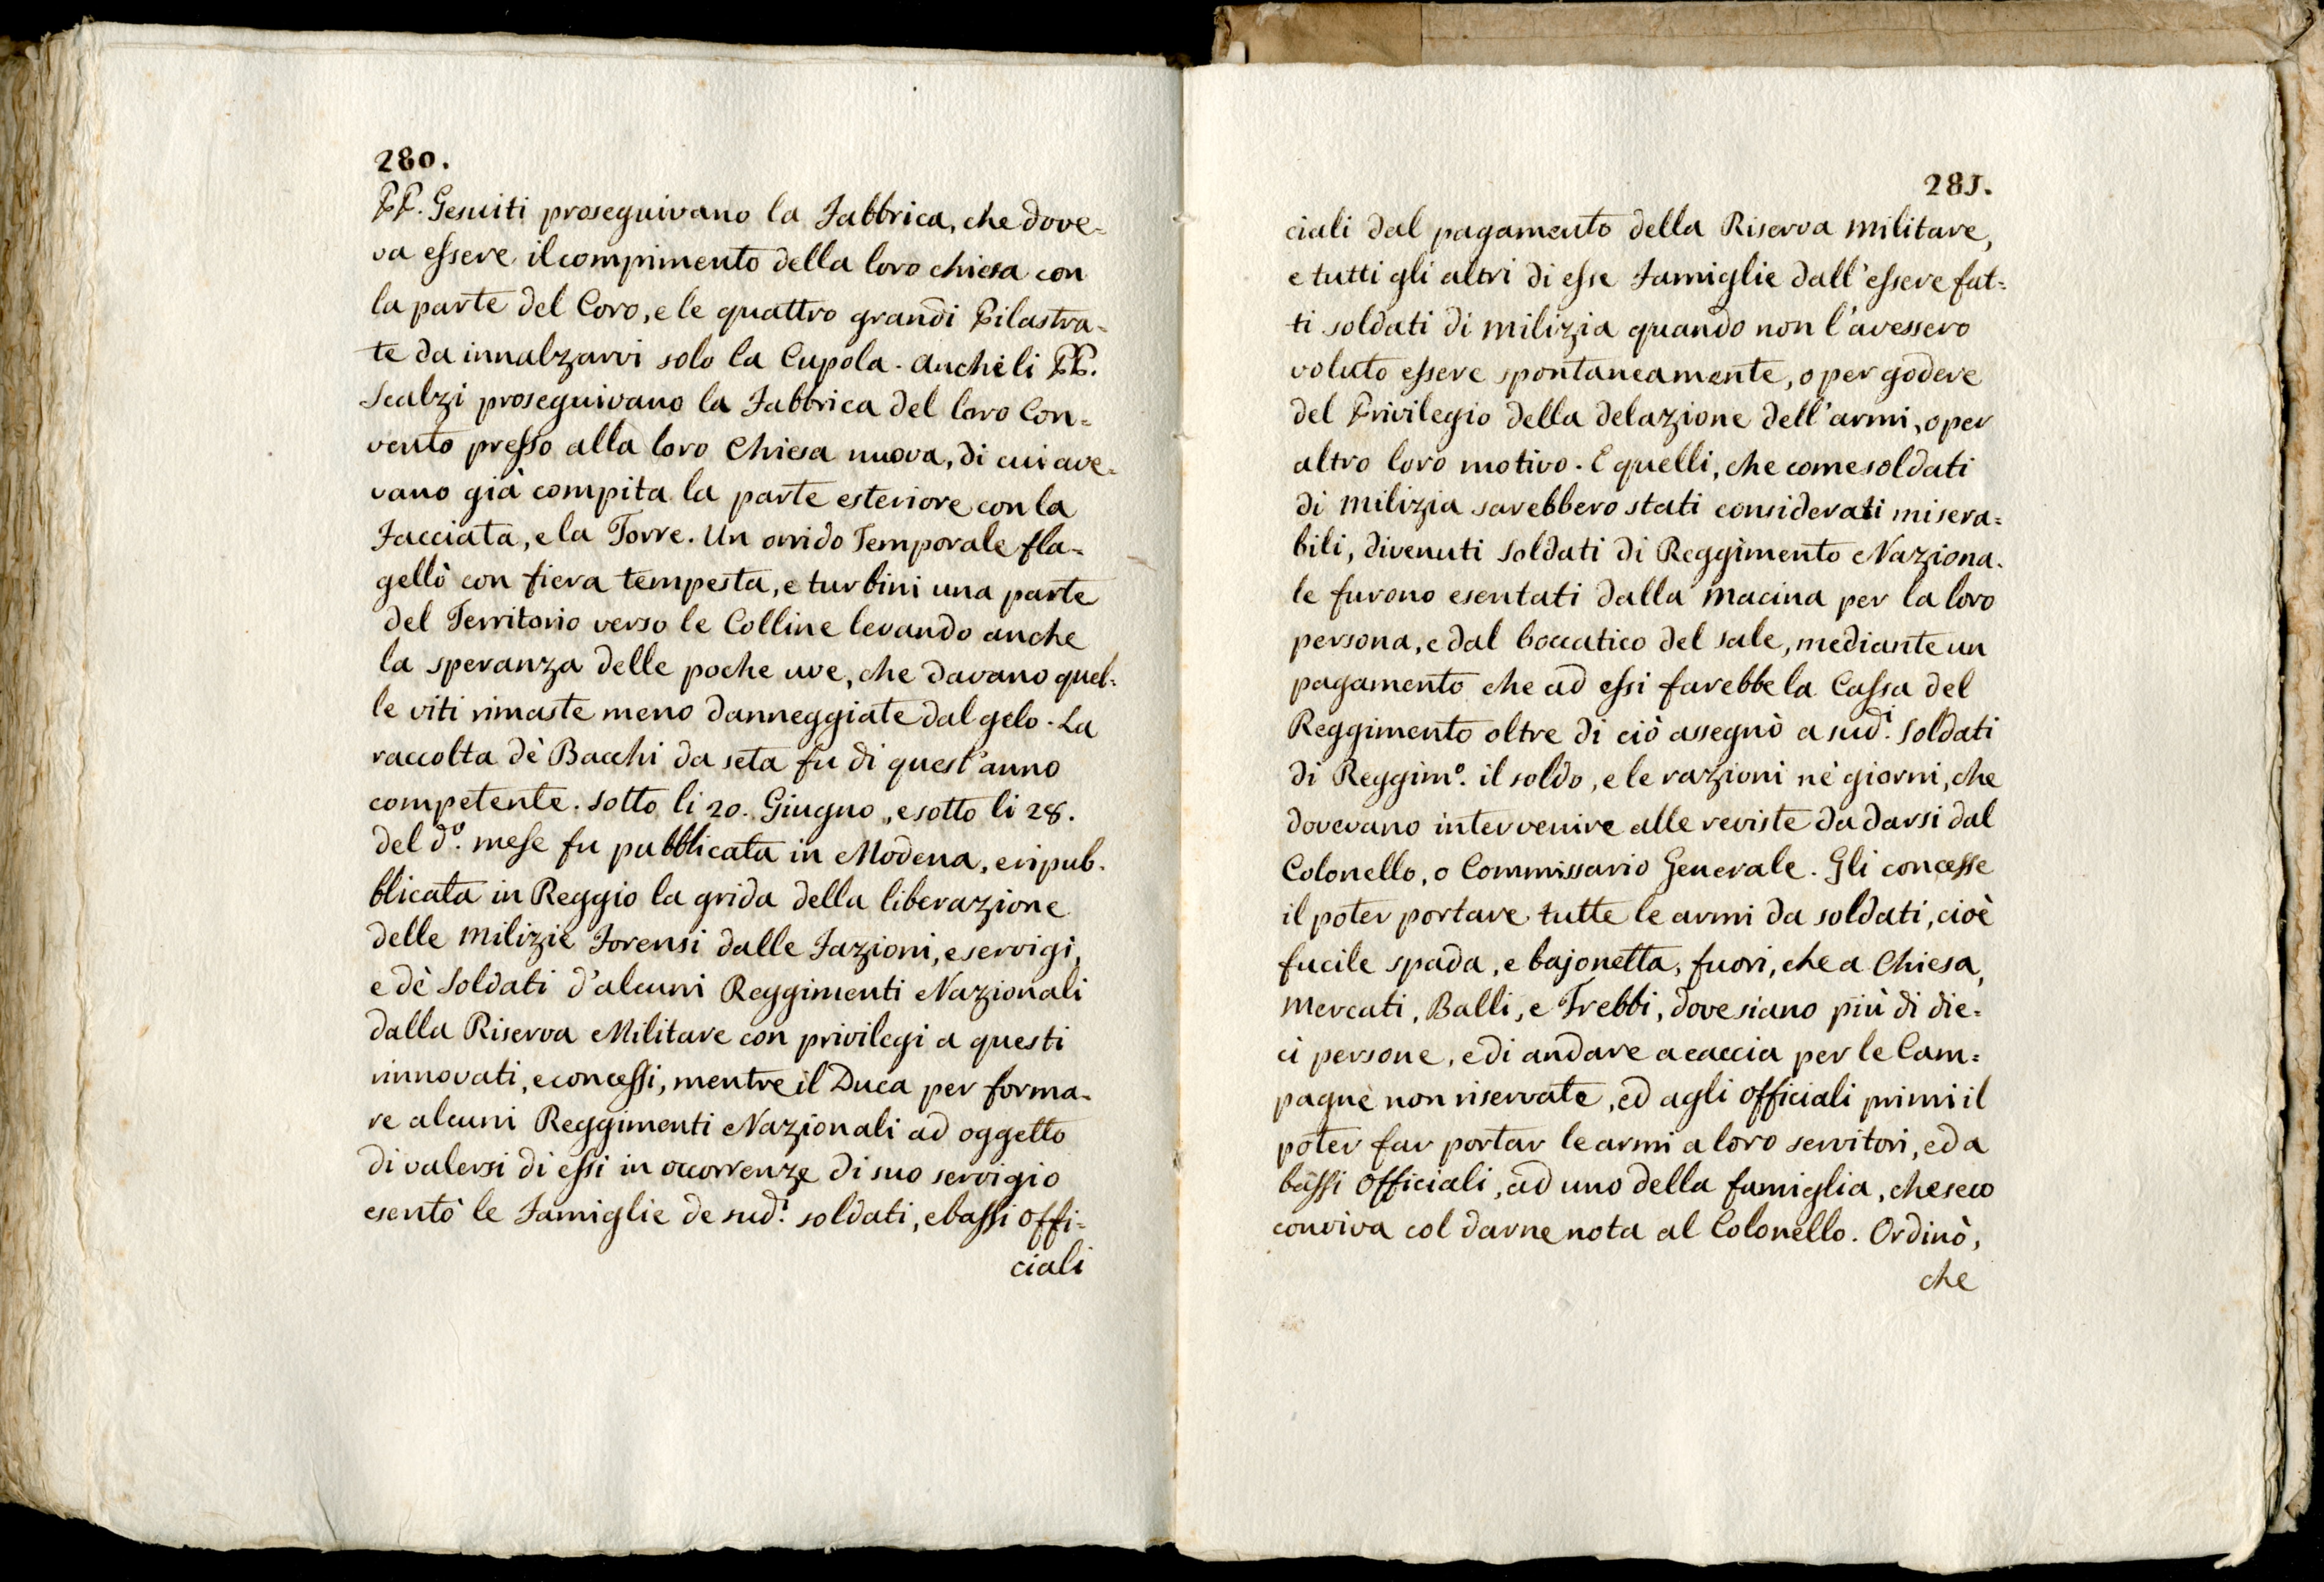 280.
PP. Gesuiti proseguivano la Fabbrica, che dove-
va essere il compimento della loro chiesa con
la parte del Coro, e le quattro grandi Pilastra-
te da innalzarvi solo la Cupola. Anche li PP.
Scalzi proseguivano la Fabbrica del loro Con=
vento presso alla loro Chiesa nuova, di cui ave-
vano già compita la parte esteriore con la
Facciata, e la Torre. Un orrido Temporale fla-
gellò con fiera tempesta, e turbini una parte
del Territorio verso le Colline levando anche
la speranza delle poche uve, che davano quel-
le viti rimaste meno danneggiate dal gelo. La
raccolta dè Bacchi da seta fu di quest'anno
competente. Sotto li 20. Giugno, e sotto li 28.
del dº. mese fu pubblicata in Modena, e ripub-
blicata in Reggio la grida della liberazione
delle Milizie Forensi dalle Fazioni, e servigi,
e dè Soldati d'alcuni Reggimenti Nazionali
dalla Riserva Militare con privilegi a questi
rinnovati, e concessi, mentre il Duca per forma-
re alcuni Reggimenti Nazionali ad oggetto
di valersi di essi in occorrenze di suo servigio
esentò le Famiglie de sudⁱ. soldati, e bassi offi=
ciali
281.
ciali dal pagamento della Riserva Militare,
e tutti gli altri di esse Famiglie dall'essere fat=
ti soldati di Milizia quando non l'avessero
voluto essere spontaneamente, o per godere
del Privilegio della delazione dell'armi, o per
altro loro motivo. E quelli, che come soldati
di Milizia sarebbero stati considerati misera=
bili, divenuti Soldati di Reggimento Naziona-
le furono esentati dalla Macina per la loro
persona, e dal boccatico del sale, mediante un
pagamento che ad essi farebbe la Cassa del
Reggimento oltre di ciò assegnò a sudⁱ. Soldati
di Reggimº. il soldo, e le razioni nè giorni, che
dovevano intervenire alle reviste da darsi dal
Colonello, o Commissario Generale. Gli concesse
il poter portare tutte le armi da soldati, cioè
fucile spada, e bajonetta, fuori, che a Chiesa,
Mercati, Balli, e Trebbi, dove siano più di die=
ci persone, e di andare a caccia per le Cam=
pagne non riservate, ed agli officiali primi il
poter far portar le armi a loro servitori, ed a
bassi officiali, ad uno della famiglia, che seco
conviva col darne nota al Colonello. Ordinò,
che